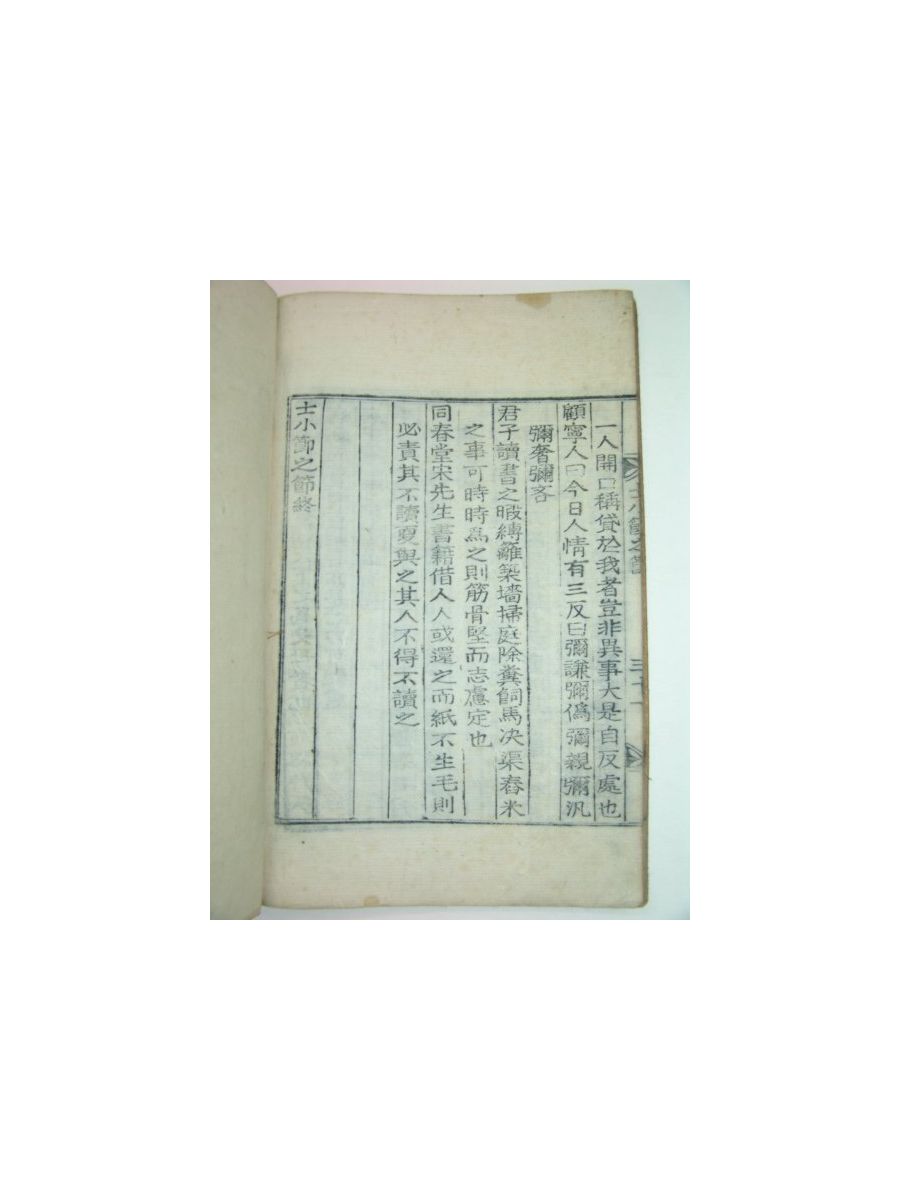 士小節之節
三十
一人開口稱貸於我者豈非異事大是自反處也
顧寧人曰今日人情有三反曰彌謙彌僞彌親彌汎
彌奢彌吝
君子讀書之暇縛籬築墻掃庭除糞飼馬决渠舂米
之事可時時爲之則筋骨堅而志慮定也
同春堂宋先生書籍借人人或還之而紙不生毛則
必責其不讀更與之其人不得不讀之
士小節之節終